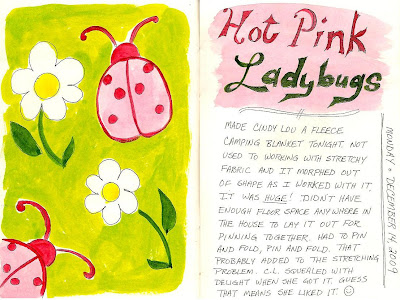 Hot Pink
Ladybugs
MADE CINDY LOU A FLEECE
CAMPING BLANKET TONIGHT. NOT
USED TO WORKING WITH STRETCHY
FABRIC AND IT MORPHED OUT
OF SHAPE AS I WORKED WITH IT.
IT WAS HUGE! DIDN'T HAVE
ENOUGH FLOOR SPACE ANYWHERE IN
THE HOUSE TO LAY IT OUT FOR
PINNING TOGETHER. HAD TO PIN
AND FOLD, PIN AND FOLD. THAT
PROBABLY ADDED TO THE STRETCHING
PROBLEM. C.L. SQUEALED WITH
DELIGHT WHEN SHE GOT IT. GUESS
THAT MEANS SHE LIKED IT. ☺
MONDAY • DECEMBER 14, 2009